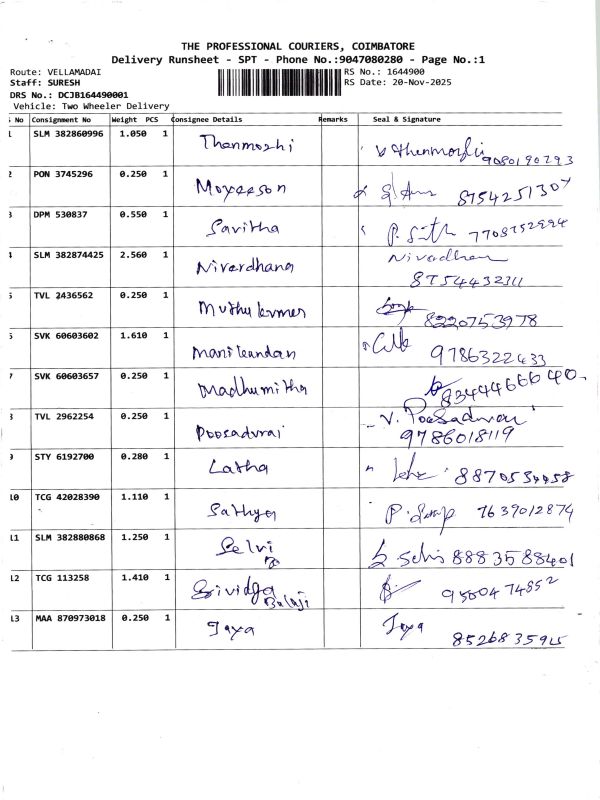 THE PROFESSIONAL COURIERS, COIMBATORE
Delivery Runsheet - SPT - Phone No.:9047080280 - Page No.:1
Route: VELLAMADAI RS No.: 1644900
Staff: SURESH RS Date: 20-Nov-2025
DRS No.: DCJB164490001
Vehicle: Two Wheeler Delivery
No Consignment No Weight PCS Consignee Details Remarks Seal & Signature
1 SLM 382860996 1.050 1 Thenmozhi V Thenmozhi 9080190293
2 PON 3745296 0.250 1 8754251307
3 DPM 530837 0.550 1 Savitha
4 SLM 382874425 2.560 1 Niverdhana Nivedhan
8754432311
5 TVL 2436562 0.250 1 Muthu kumar 8220753978
6 SVK 60603602 1.610 1 Manikandan 9786322433
7 SVK 60603657 0.250 1 Madhumitha 8344466640
8 TVL 2962254 0.250 1 Poosadurai V. Poosadurai
9786018119
9 STY 6192700 0.280 1 Latha
10 TCG 42028390 1.110 1 Sathya 7639012874
11 SLM 382880868 1.250 1 Selvi 8883588401
12 TCG 113258 1.410 1 Srividya
Balaji 9500474852
13 MAA 870973018 0.250 1 Jaya Jaya
8526835915